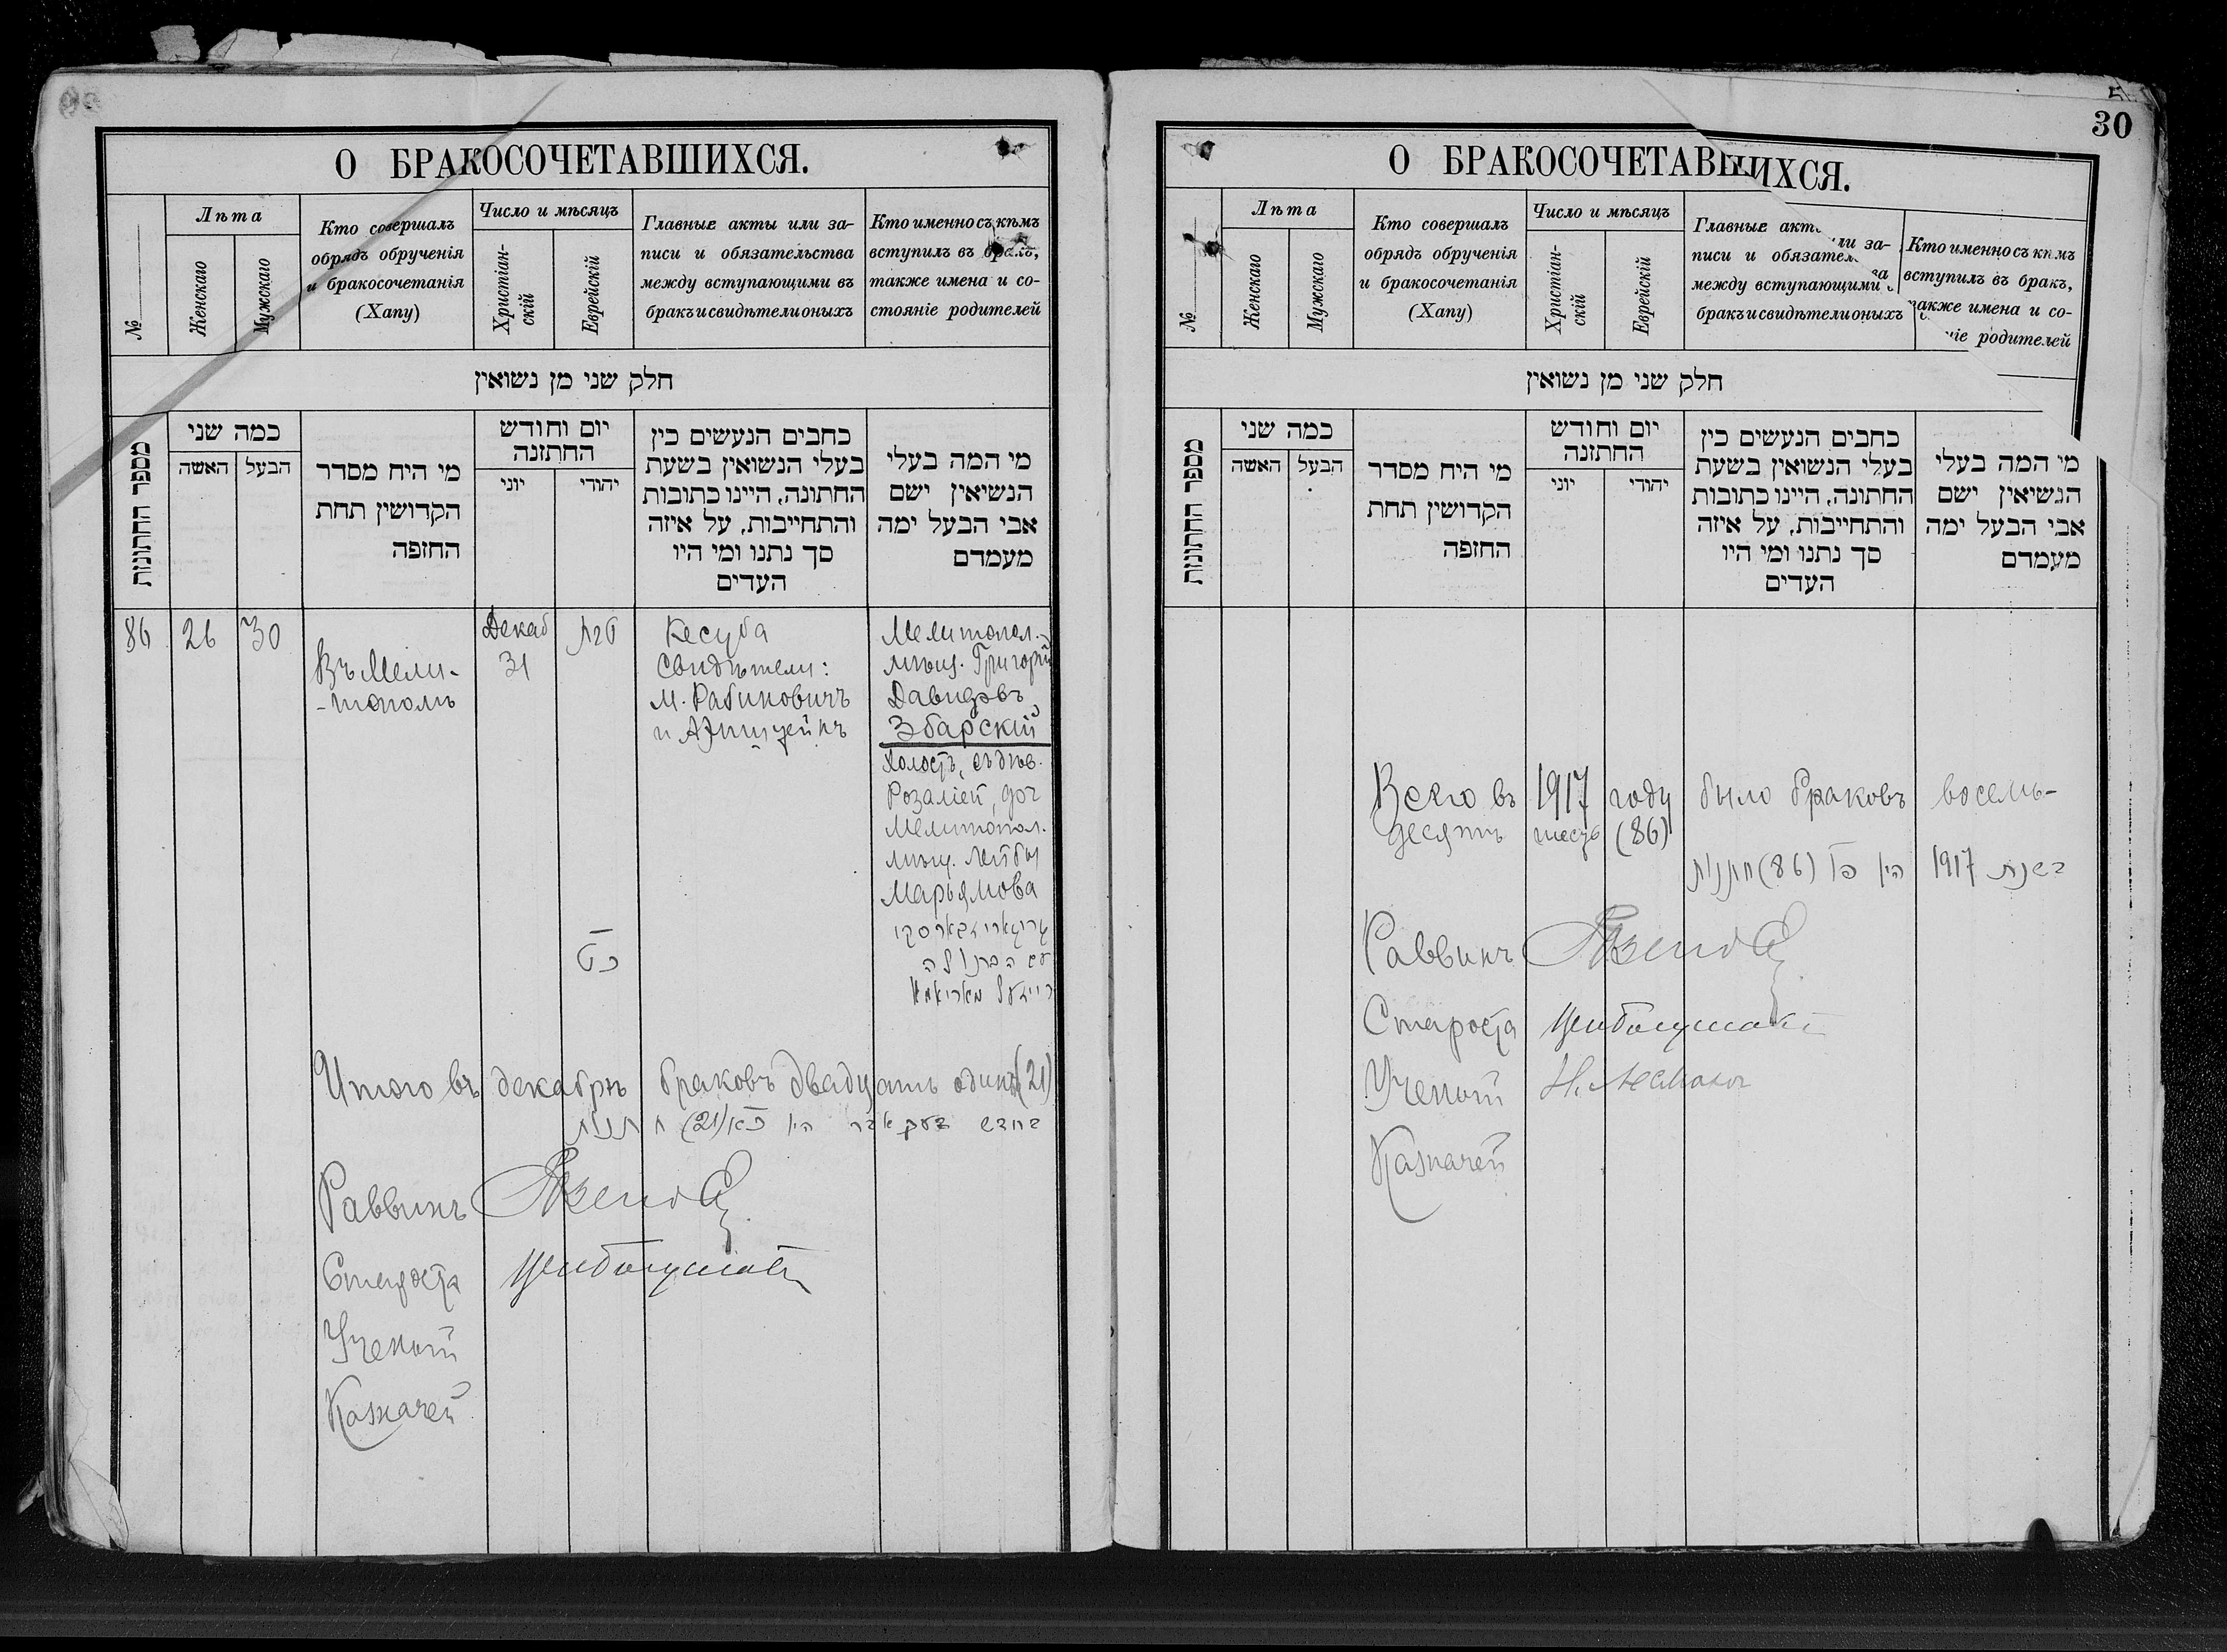 О БРАКОСОЧЕТАВШИХСЯ.
№
Лѣта
Женскаго
Мужскаго
Кто совершалъ
обрядъ обрученія
и бракосочетанія
(Хапу)
Число и мѣсяцъ
Христіан-
скій
Еврейскій
Главные акты или за-
писи и обязательства
между вступающими въ
бракъ и свидѣтели оныхъ
Кто именно съ кѣмъ
вступилъ въ бракъ,
также имена и со-
стояніе родителей
חלק שני מן נשואין
מספר החתונות
כמה שני
האשה
הבעל
מי היח מסדר
הקדושין תחת
החזפה
יום וחודש
החתזנה
יוני
יהודי
כחבים הנעשים כין
בעלי הנשואין בשעת
החתונה, היינו כתובות
והתחייבות, על איזה
סך נתנו ומי היו
העדים
מי המה בעלי
הנשיאין ישם
אבי הבעל ימה
מעמדם
86
26
30
Въ Мели-
-тополѣ
Декаб
31
טבת
כט
Кесуба
Свидѣтели:
М. Рабиновичъ
и
Мелитопол.
мѣщ. Григорій
Давидовъ
Збарскій
холостъ, съ дѣв.
Розаліей, доч
Мелитопол.
мѣщ. Лейбы
Марьямова
עם הבתולה
Итого въ декабрѣ браковъ двадцать одинъ (21)
בחדש דעקאבר היו כ״א (21) חתנות
Раввинъ
Староста
Ученый
Казначей
30
О БРАКОСОЧЕТАВШИХСЯ.
№
Лѣта
Женскаго
Мужскаго
Кто совершалъ
обрядъ обрученія
и бракосочетанія
(Хапу)
Число и мѣсяцъ
Христіан-
скій
Еврейскій
Главные акт ли за-
писи и обязател
между вступающими
бракъ и свидѣтели оныхъ
Кто именно съ кѣмъ
вступилъ въ бракъ,
также имена и со-
ніе родителей
חלק שני מן נשואין
מספר החתונות
כמה שני
האשה
הבעל
מי היח מסדר
הקדושין תחת
החזפה
יום וחודש
החתזנה
יוני
יהודי
כחבים הנעשים כין
בעלי הנשואין בשעת
החתונה, היינו כתובות
והתחייבות, על איזה
סך נתנו ומי היו
העדים
מי המה בעלי
הנשיאין ישם
אבי הבעל ימה
מעמדם
Всего въ 1917 году было браковъ восемь-
десятъ шесть (86)
בשנת 1917 היו פ״ו (86) חתנות
Раввинъ
Староста
Ученый
Казначей